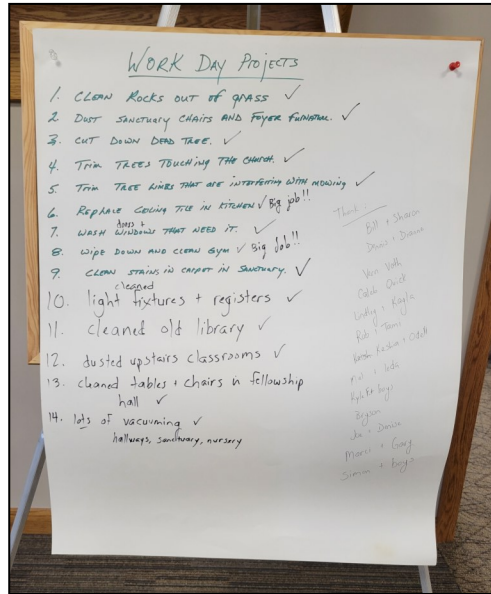 WORK DAY PROJECTS
1. CLEAN ROCKS OUT OF GRASS ✓
2 DUST SANCTUARY CHAIRS AND FOYER FURNITURE. ✓
3. CUT DOWN DEAD TREE. ✓
4. TRIM TREES TOUCHING THE CHURCH. ✓
5 TRIM TREE LIMBS THAT ARE INTERFERING WITH MOWING ✓
6. REPLACE CEILING TILE IN KITCHEN ✓ Big job!!
doors +
7. WASH WINDOWS THAT NEED IT. ✓
8. WIPE DOWN AND CLEAN GYM ✓ Big Job!!
9. CLEAN STAINS IN CARPET IN SANCTUARY. ✓
cleaned
10. light fixtures + registers ✓
11. cleaned old library ✓
12. dusted upstairs classrooms ✓
13. cleaned tables + chairs in fellowship
hall ✓
14. lots of vacuuming ✓
hallways, sanctuary, nursery
Thank
Bill + Sharon
+ Dianne
Caleb
+ Kayla
Rob + Tami
+
Kyle + boys
Bryson
+
Marsi + Gary
Simon + boys